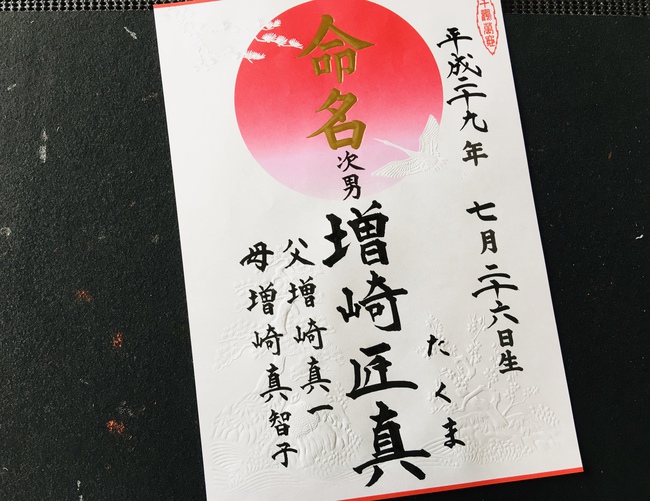 平成二十九年 七月二十六日生
命名
次男
増崎匠真
たくま
父 増崎真一
母 増崎真智子